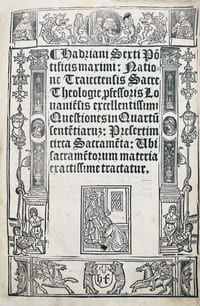 Hadriani Sexti Põ
tificis maximi: Natio
ne Traiectensis Sacre
Theologie, pfessoris Lo
uaniẽsis excellentissimi
Questiones in Quartũ
sentẽtiaruꝫ: Presertim
circa Sacramẽta: Ubi
sacramẽtorum materia
exactissime tractatur.